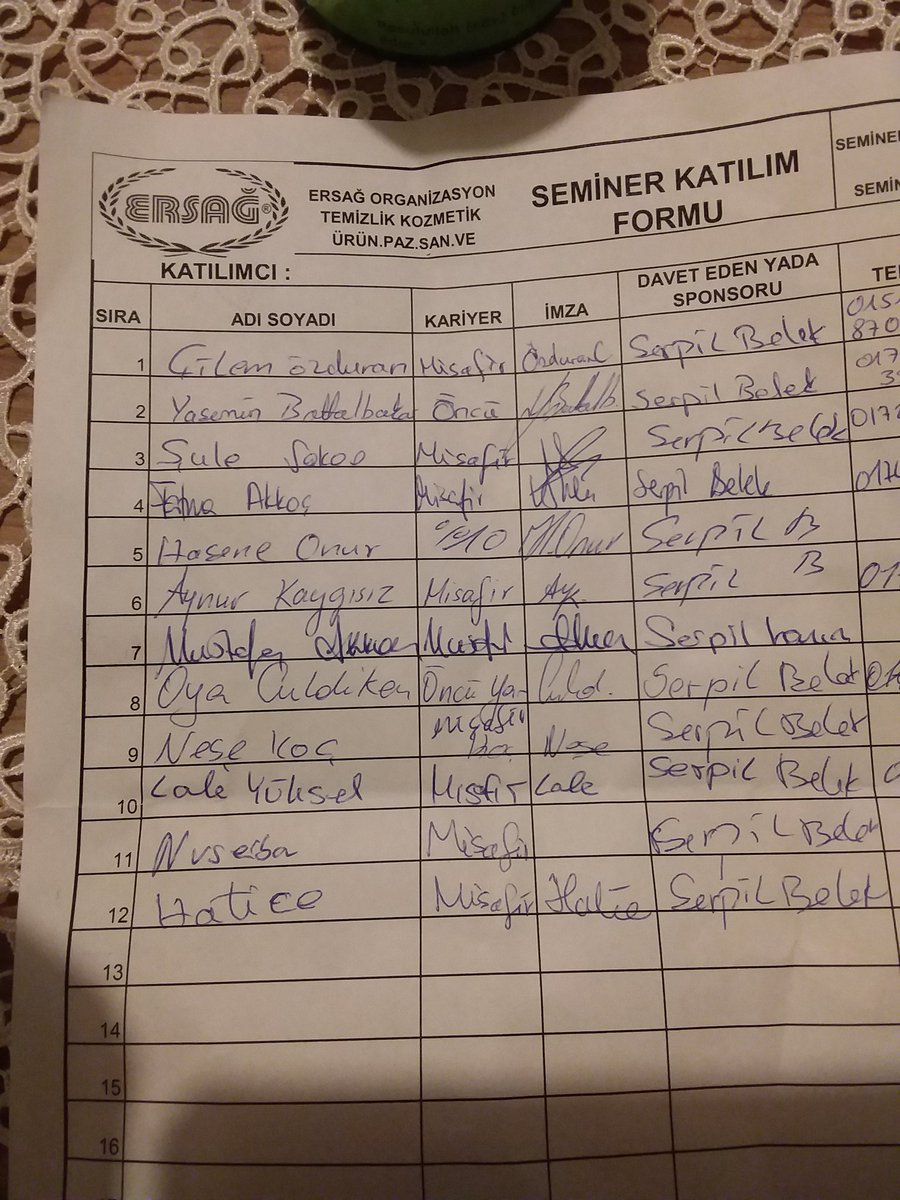 ERSAĞ®
ERSAĞ ORGANİZASYON
TEMİZLİK KOZMETİK
ÜRÜN.PAZ.SAN.VE
SEMİNER KATILIM
FORMU
SEMİNE
SEMİN
KATILIMCI :
SIRA ADI SOYADI KARİYER İMZA DAVET EDEN YADA SPONSORU TE
1 Çilem Özduran Misafir Özduran Serpil Belek 015 870
2 Yasemin Battalbaka Öncü Serpil Belek 017 3
3 Şule Misafir Serpil Belek 0172
4 Fatma Akkoç Misafir Serpil Belek 017
5 Hasene Onur %10 H.Onur Serpil B
6 Aynur Kaygısız Misafir Ay. Serpil B 01
7 Mustafa Serpil hanım
8 Oya Culdiken Öncü Ya- Serpil Belek
9 Neşe Koç misafir Neşe Serpil Belek
10 Lale Yüksel Misfir Lale Serpil Belek 0
11 Nuseiba Misafir Serpil Belek
12 Hatice Misafir Hatice Serpil Belek
13
14
15
16